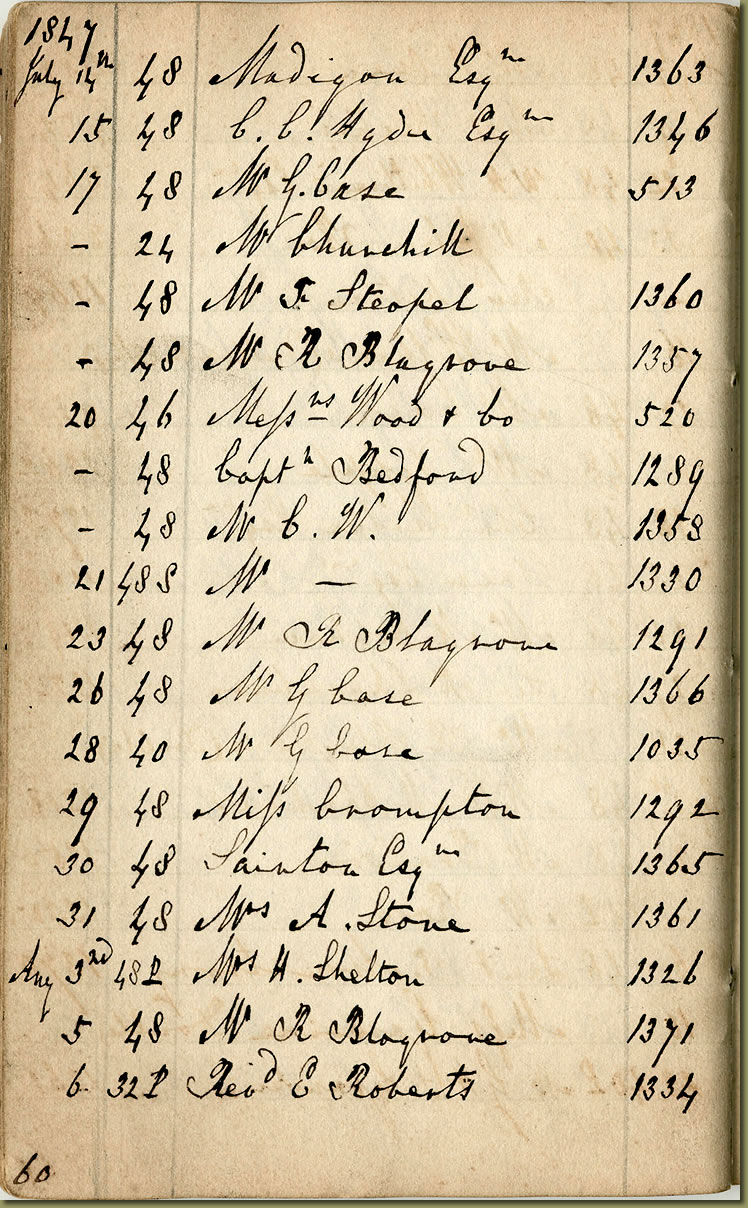 1847
July 14th 48 Madigan Esqre 1363
15 48 C. C. Hyde Esqre 1346
17 48 Mr G. Case 513
- 24 Mr Churchill
- 48 Mr F Steopel 1360
- 48 Mr R Blagrove 1357
20 46 Messrs Wood & Co 520
- 48 Captn Bedford 1289
- 48 Mr C. W. 1358
21 48 S Mr — 1330
23 48 Mr R Blagrove 1291
26 48 Mr G Case 1366
28 40 Mr G Case 1035
29 48 Miss Crompton 1292
30 48 Sainton Esqre 1365
31 48 Mrs A. Stone 1361
Aug 3rd 48 P Mrs H. Shelton 1326
5 48 Mr R Blagrove 1371
6 32 P Revd E Roberts 1334
60